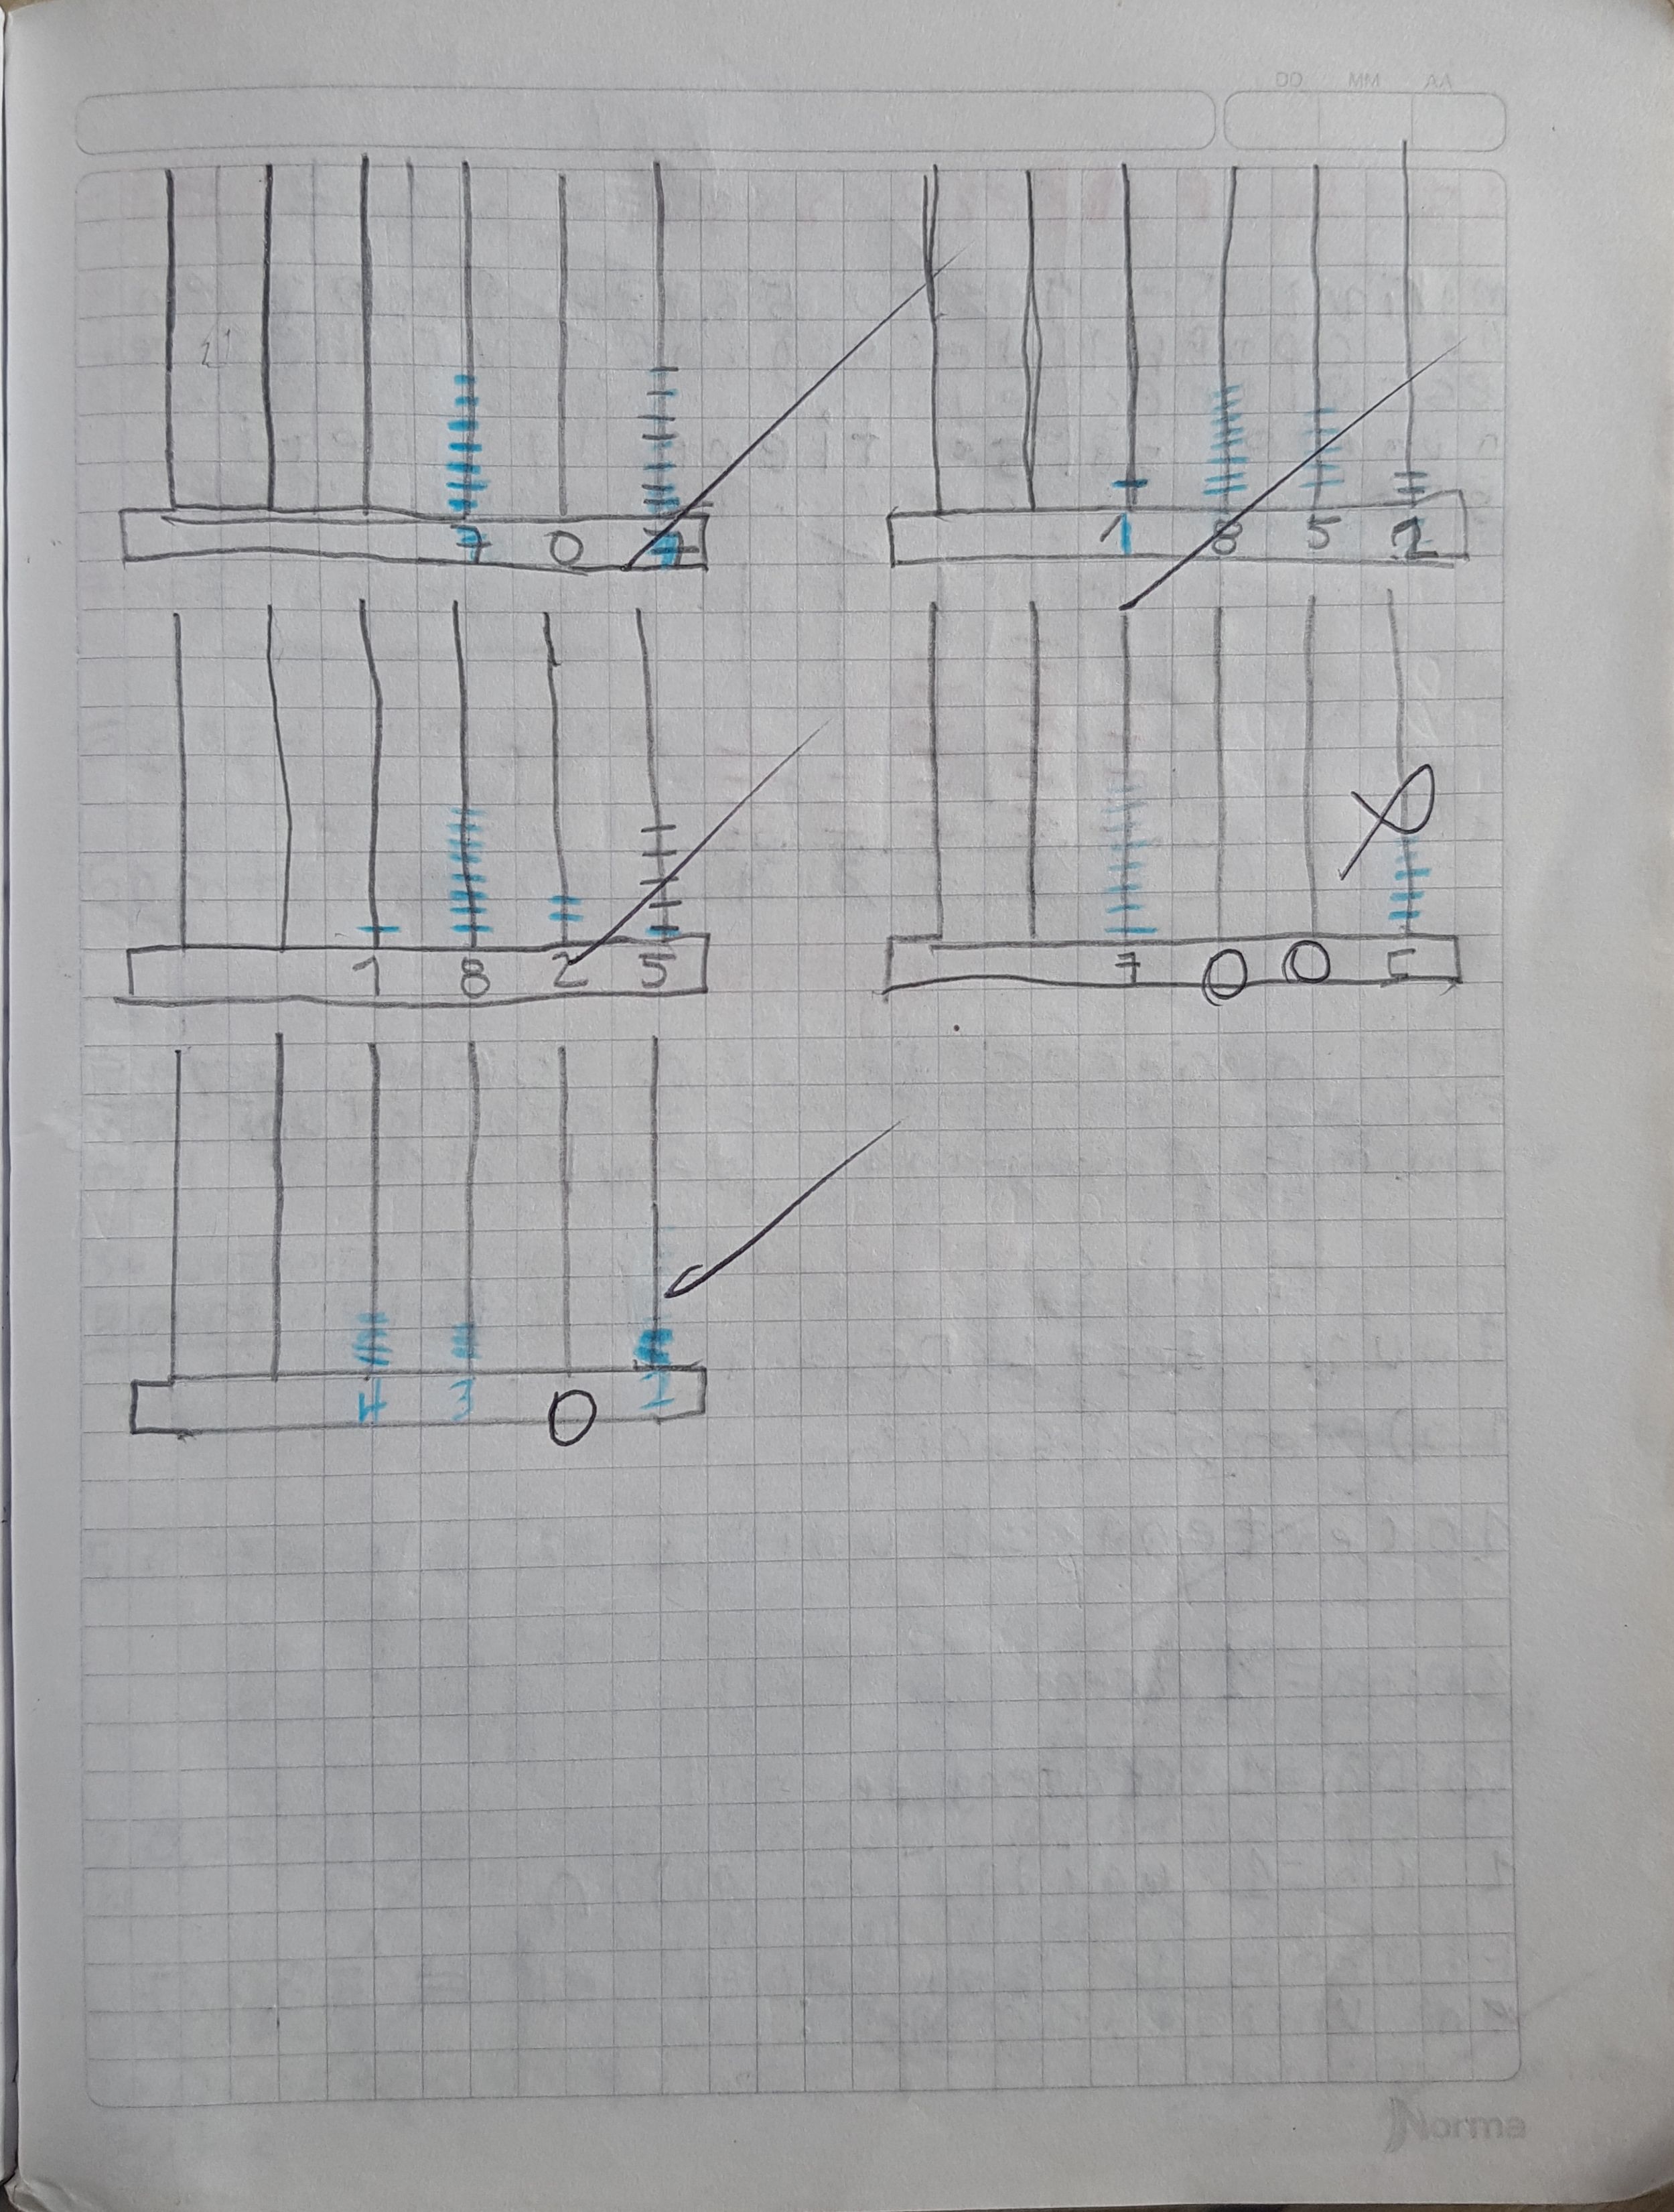 DD MM AA
7 0 7
1 8 5 2
1 8 2 5
7 0 0 5
4 3 0
Norma